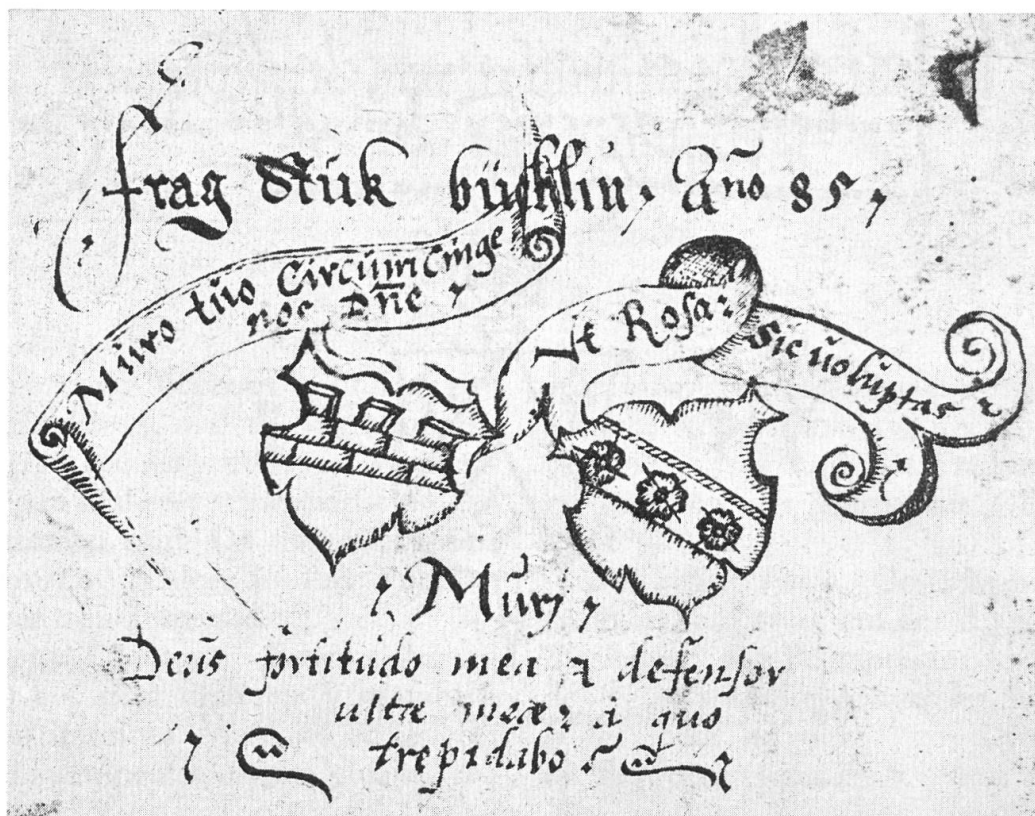 frag stuk büchlin. Año 85.
Muro tuo Circumcinge
nos Dñe
Ut Rosa
Sic uoluptas
Murj
Deus fortitudo mea & defensor
uitæ meæ, a quo
trepidabo?